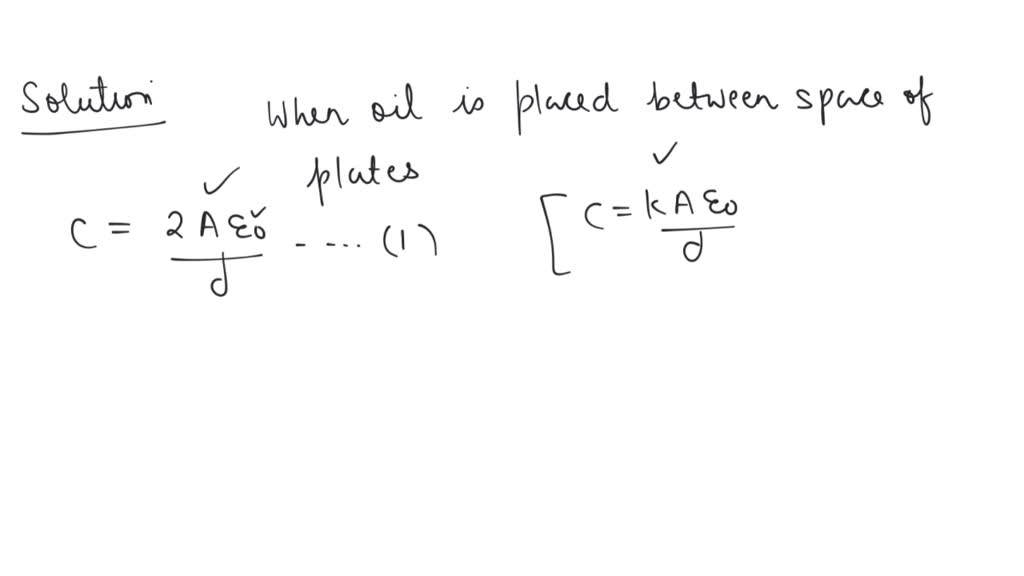 Solution When oil is placed between space of
plates
C = 2 A ε0 / d - --- (1) [ C = k A ε0 / d